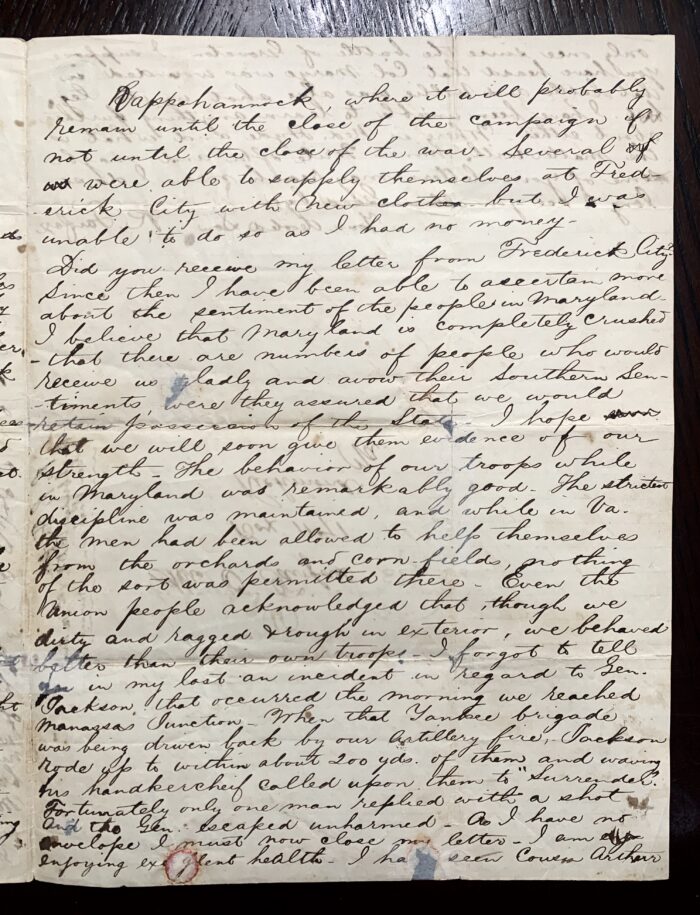 Rappahannock, where it will probably
remain until the close of the campaign if
not until the close of the war. Several of
us were able to supply themselves at Fred-
-erick City with new clothes but I was
unable to do so as I had no money-
Did you receive my letter from Frederick City?
Since then I have been able to ascertain more
about the sentiment of the people in Maryland.
I believe that Maryland is completely crushed
- that there are numbers of people who would
receive us gladly and avow their Southern Sen-
-timents, were they assured that we would
retain possession of the State. I hope
that we will soon give them evidence of our
strength - The behavior of our troops while
in Maryland was remarkably good - The strictest
discipline was maintained, and while in Va.
the men had been allowed to help themselves
from the orchards and corn-fields, nothing
of the sort was permitted there - Even the
Union people acknowledged that, though we
dirty and ragged & rough in exterior, we behaved
better than their own troops - I forgot to tell
in my last an incident in regard to Gen.
Jackson, that occurred the morning we reached
Manassas Junction - When that Yankee brigade
was being driven back by our Artillery fire, Jackson
rode up to within about 200 yds. of them and waving
his handkercheif called upon them to "Surrender".
Fortunately only one man replied with a shot
and the Gen. escaped unharmed - As I have no
envelope I must now close my letter - I am
enjoying excellent health - I have seen Cousin Arthur